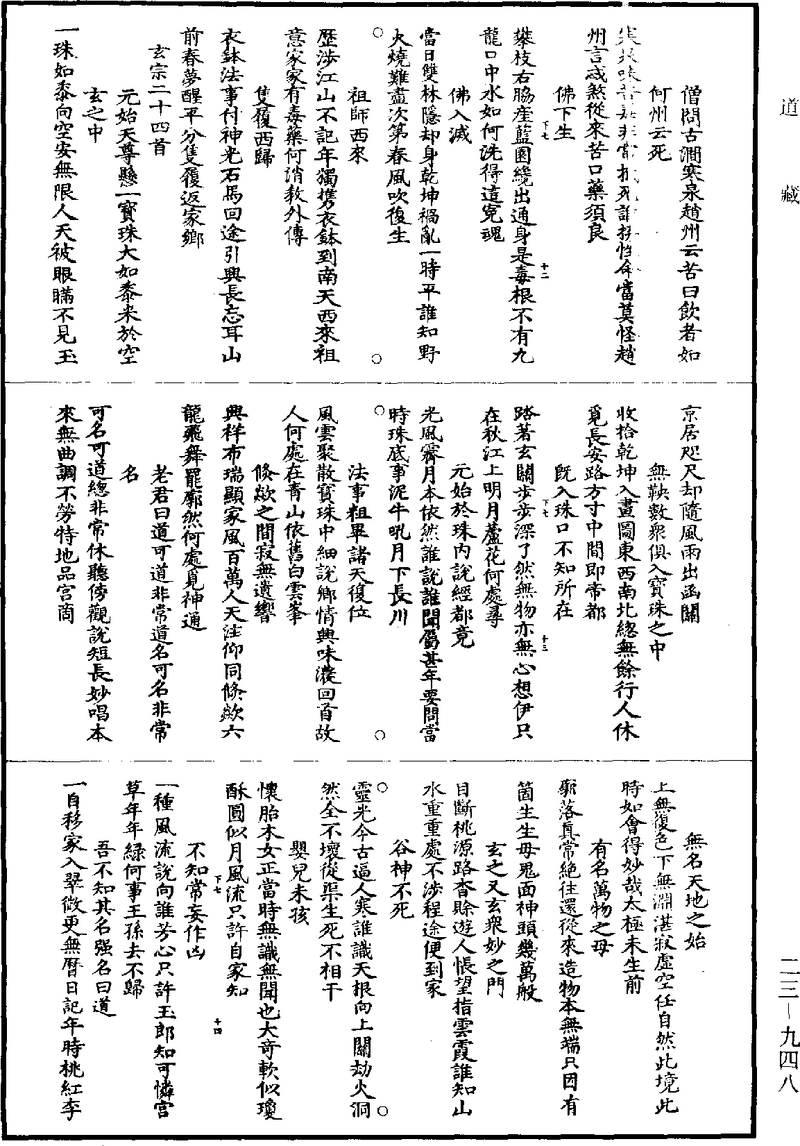 道藏
僧問古澗寒泉趙州云苦曰飲者如
何州云死
州言忒煞從來苦口藥須良
佛下生
攀枝右脇産藍園纔出通身是毒根不有九
龍口中水如何洗得這寃魂
佛入滅
當日雙林隱却身乾坤禍亂一時平誰知野
火燒難盡次第春風吹復生
祖師西來
歷涉江山不記年獨攜衣鉢到南天西來祖
意家家有毒藥何消教外傳
隻履西歸
衣鉢法事付神光石馬回途引興長忘耳山
前春夢醒平分隻履返家鄉
玄宗二十四首
元始天尊懸一寶珠大如黍米於空
玄之中
一珠如黍向空安無限人天被眼瞞不見玉
京居咫尺却隨風雨出函關
無鞅數衆俱入寶珠之中
收拾乾坤入畫圖東西南北緫無餘行人休
覓長安路方寸中間即帝都
既入珠口不知所在
踏著玄關步步深了然無物亦無心想伊只
在秋江上明月蘆花何處尋
元始於珠内說經都竟
光風霽月本依然誰說誰聞屬甚年要問當
時珠底事泥牛吼月下長川
法事粗畢諸天復位
風雲聚散寳珠中細說鄉情興味濃回首故
人何處在青山依舊白雲峯
倐歘之間寂無遺響
興祥布瑞顯家風百萬人天注仰同倐歘六
龍飛舞罷廓然何處覓神通
老君曰道可道非常道名可名非常
名
可名可道緫非常休聽傍觀說短長妙唱本
來無曲調不勞特地品宫商
無名天地之始
上無復色下無淵湛寂虚空任自然此境此
時如會得妙哉太極未生前
有名萬物之母
廓落真常絶往還從來造物本無端只因有
箇生生母鬼面神頭幾萬般
玄之又玄衆妙之門
目斷桃源路杳賒遊人悵望指雲霞誰知山
水重重處不涉程途便到家
谷神不死
靈光今古逼人寒誰識天根向上關劫火洞
然全不壞從渠生死不相干
嬰兒未孩
懷胎木女正當時無識無聞也大奇軟似瓊
酥圓似月風流只許自家知
不知常妄作凶
一種風流說向誰芳心只許玉郎知可憐宫
草年年緑何事王孫去不歸
吾不知其名强名曰道
一自移家入翠微更無曆日記年時桃紅李
下七
十二
下七
十三
下七
十四
二三—九四八